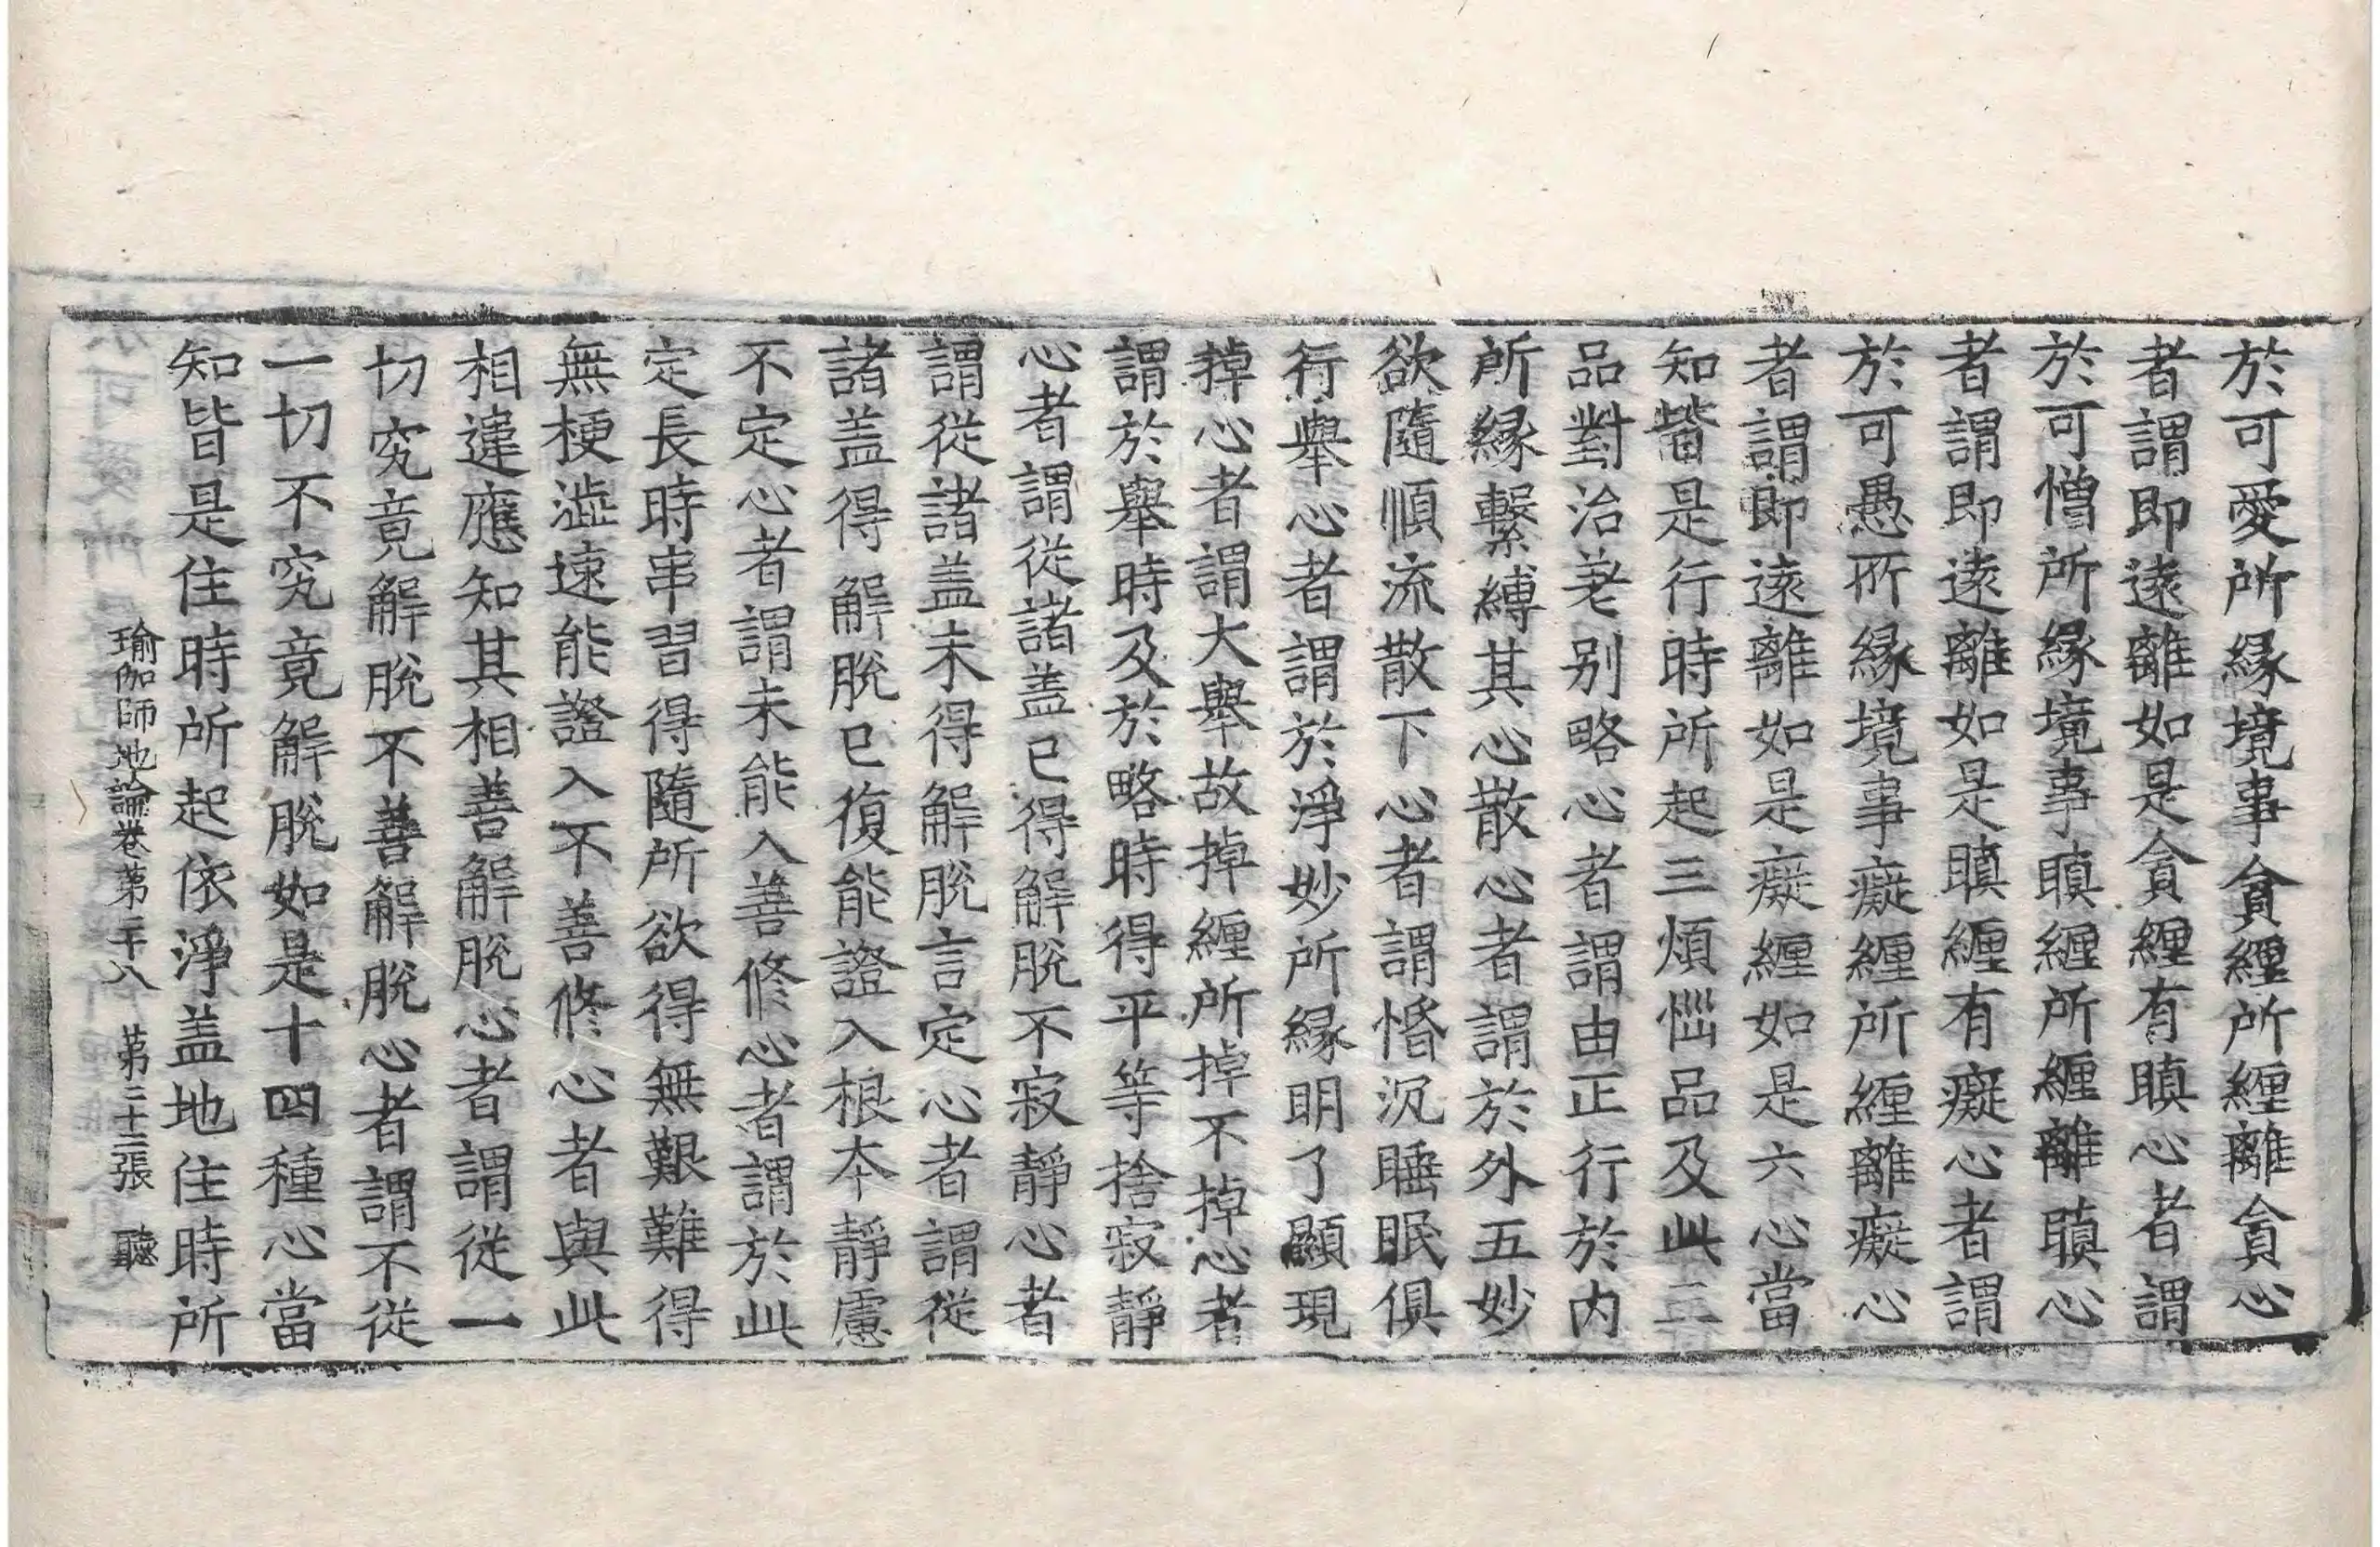 於可愛所緣境事貪纏所纏離貪心
者謂即遠離如是貪纏有瞋心者謂
於可憎所緣境事瞋纏所纏離瞋心
者謂即遠離如是瞋纏有癡心者謂
於可愚所緣境事癡纏所纏離癡心
者謂即遠離如是癡纏如是六心當
知皆是行時所起三煩惱品及此三
品對治差別略心者謂由正行於內
所緣繫縛其心散心者謂於外五妙
欲隨順流散下心者謂惛沉睡眠俱
行舉心者謂於淨妙所緣明了顯現
掉心者謂大舉故掉纏所掉不掉心者
謂於舉時及於略時得平等捨寂靜
心者謂從諸蓋已得解脫不寂靜心者
謂從諸蓋未得解脫言定心者謂從
諸蓋得解脫已復能證入根本靜慮
不定心者謂未能入善修心者謂於此
定長時串習得隨所欲得無艱難得
無梗澁速能證入不善修心者與此
相違應知其相善解脫心者謂從一
切究竟解脫不善解脫心者謂不從
一切不究竟解脫如是十四種心當
知皆是住時所起依淨蓋地住時所
瑜伽師地論卷第二十八　第三十二張　聽